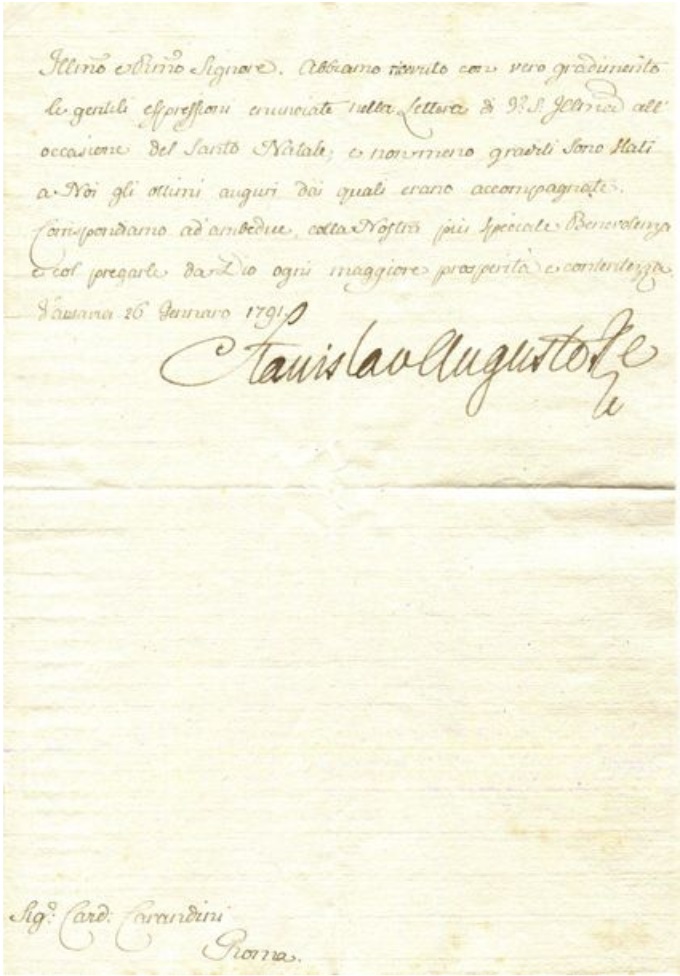 Illmo e Rmo Signore. Abbiamo ricevuto con vero gradimento
le gentili espressioni enunciate nella Lettera di V. S. Illma all'
occasione del Santo Natale; e non meno graditi sono stati
a Noi gli ottimi auguri dai quali erano accompagnate.
Corrispondiamo ad'ambedue, colla Nostra più speciale Benevolenza
e col pregarle da Dio ogni maggiore prosperità e contentezza.
Varsavia 26 Gennaro 1791.
Stanislao Augusto Re
Sigr. Card: Carandini
Roma.